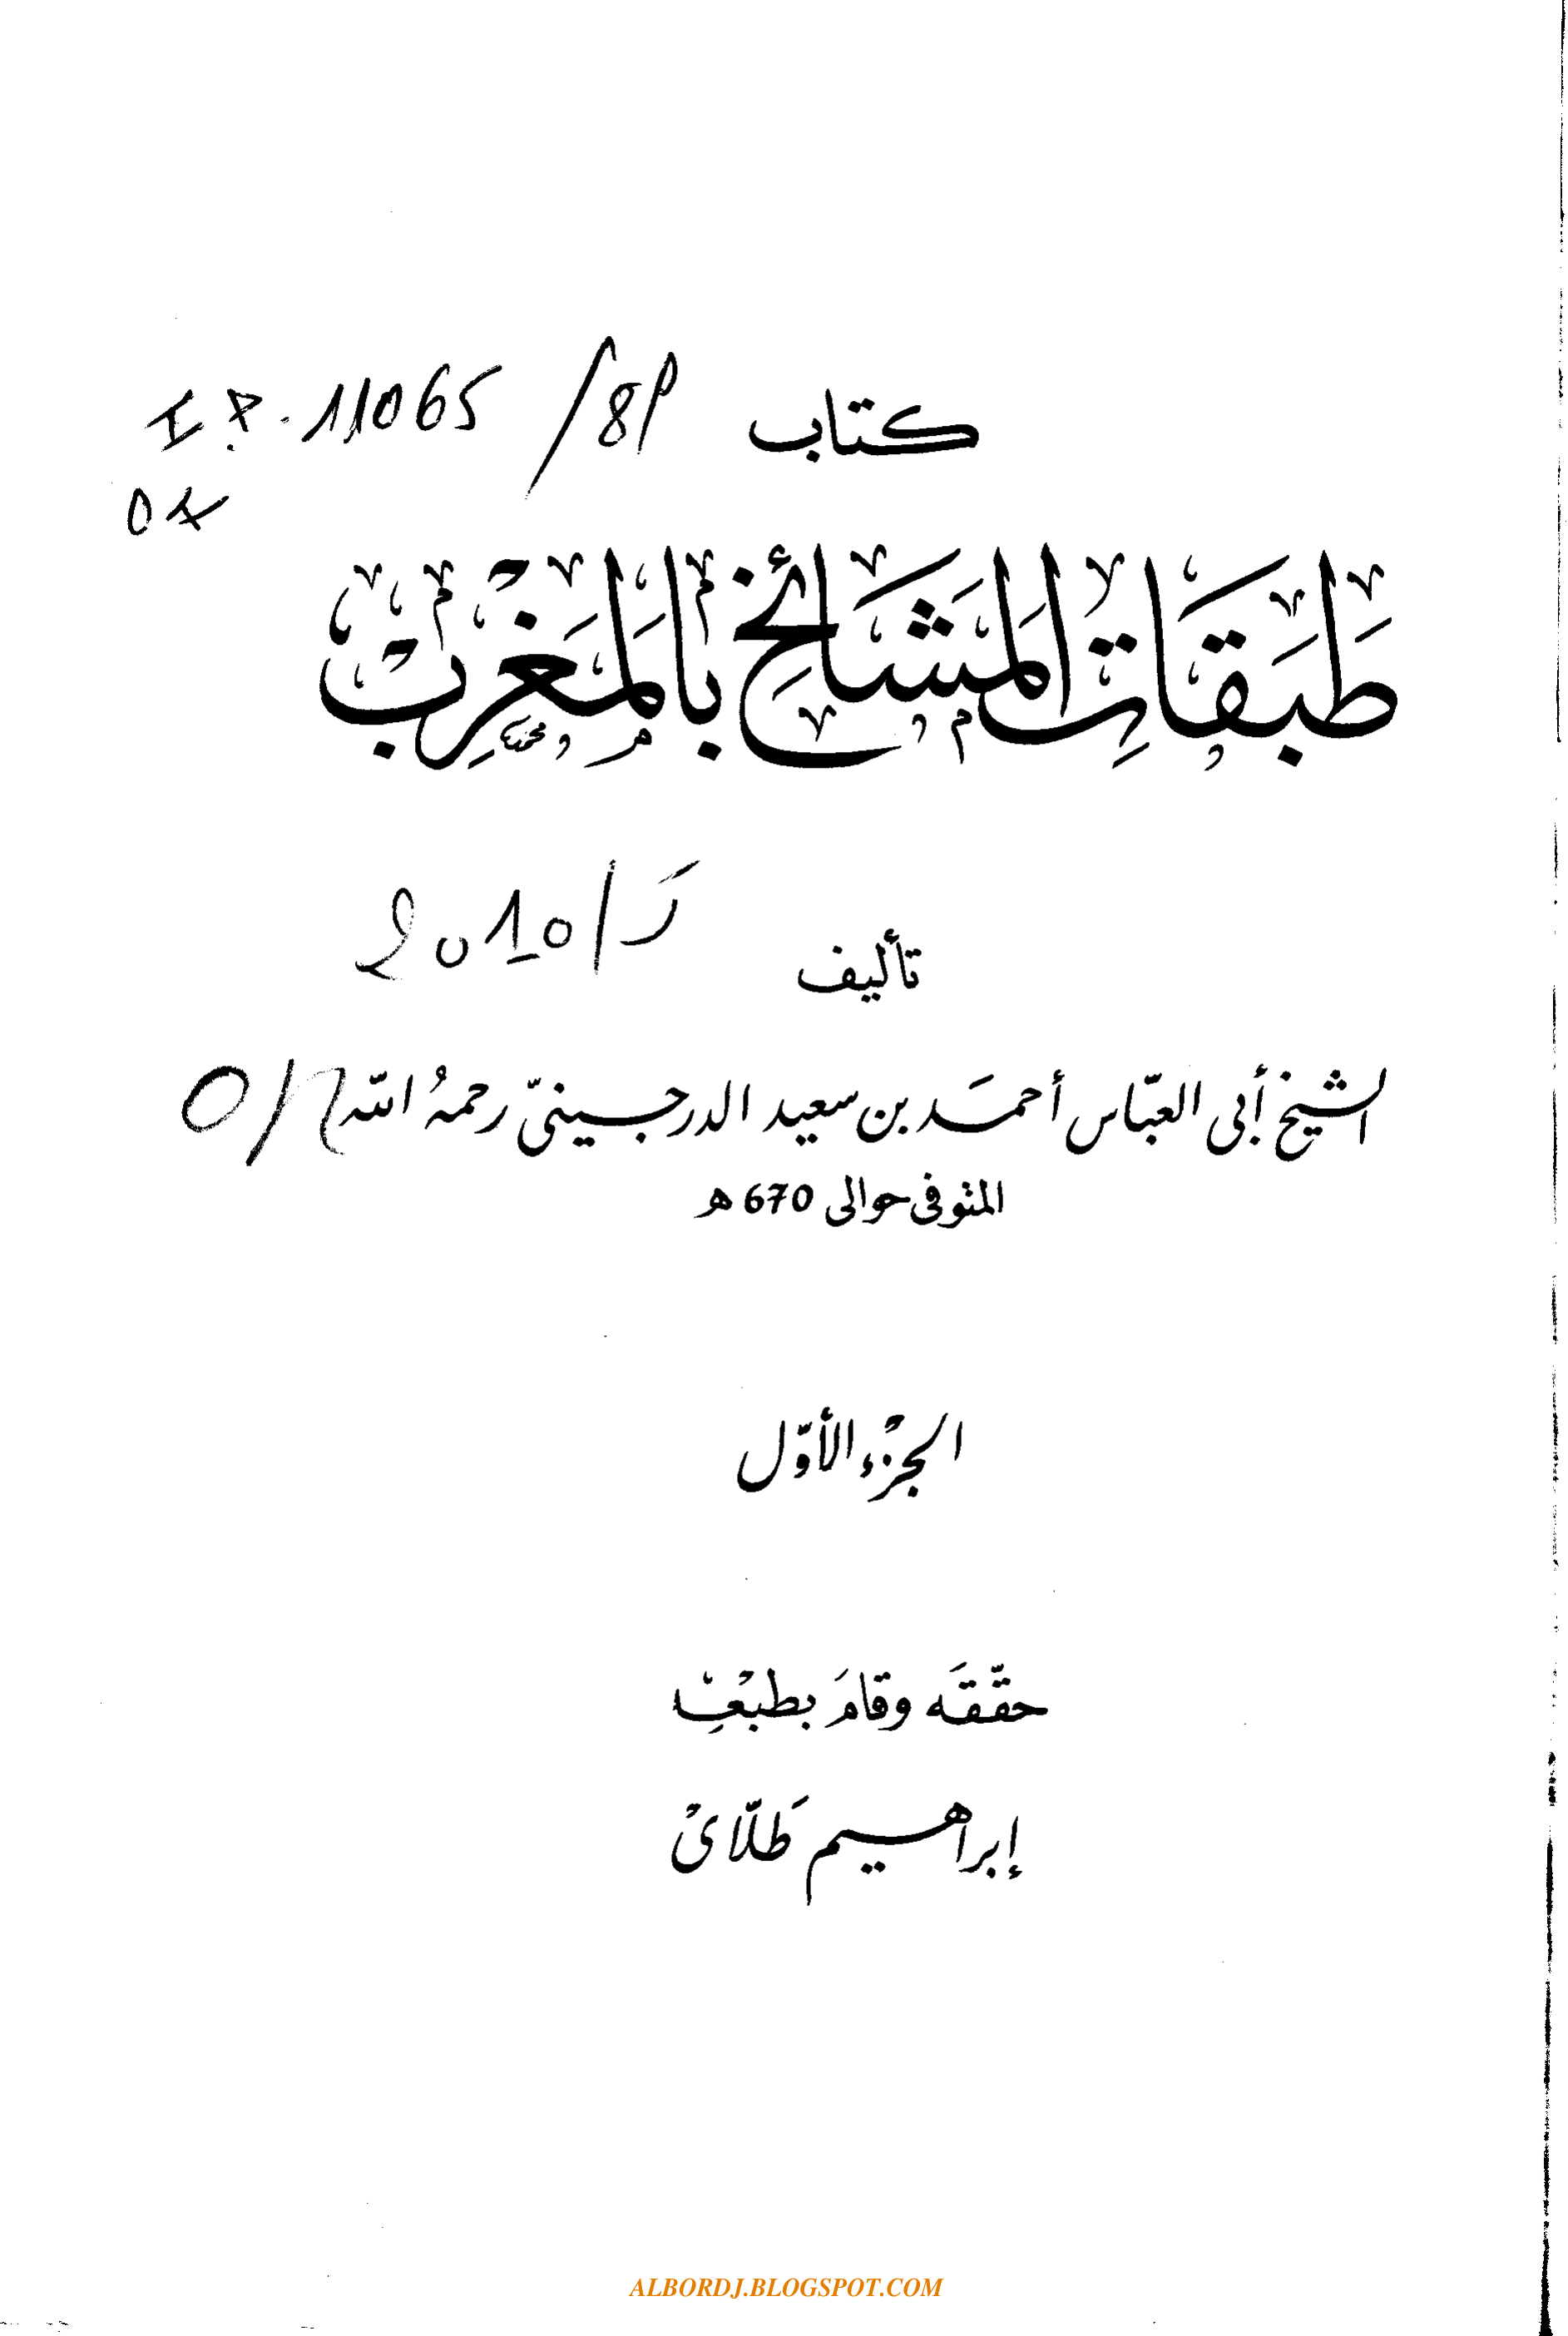 كتاب
I P. 11065 /81
طَبَقَات المَشَائِخ بالمَغْرِب
2010/
تأليف
الشيخ أبي العبّاس أحمَد بن سعيد الدرجينيّ رحمهُ الله
المتوفى حوالى 670 هـ
الجزْء الأوّل
حقّقَه وقامَ بطبْعِه
إبراهيم طَلّاىْ
ALBORDJ.BLOGSPOT.COM